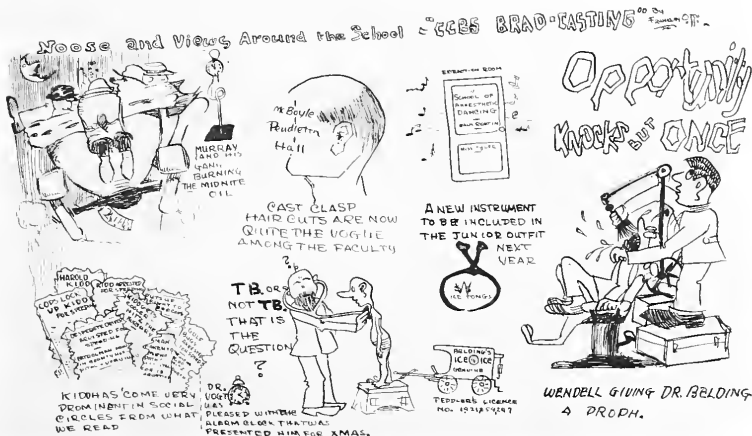 Noose and Views Around the School - "CCBS BRAD-CASTING" BY
MURRAY
AND HIS
GANG
BURNING
THE MIDNITE
OIL
Mc Boyle
Pendleton
Hall
CAST CLASP
HAIR CUTS ARE NOW
QUITE THE VOGUE
AMONG THE FACULTY
EXTRACTION ROOM
SCHOOL OF
ANAESTHETIC
DANCING
A NEW INSTRUMENT
TO BE INCLUDED IN
THE JUNIOR OUTFIT
NEXT
YEAR
ICE TONGS
Opportunity
KNOCKS BUT ONCE
HAROLD
KIDD
COPS LOCK
UP KIDD
FOR SPEEDING
KIDD ARRESTED
FOR SPEEDING
KIDD HAS COME VERY
PROMINENT IN SOCIAL
CIRCLES FROM WHAT
WE READ
TB. OR
NOT TB.
THAT IS
THE
QUESTION
?
?
DR.
VOGT
WAS
PLEASED WITH THE
ALARM CLOCK THAT WAS
PRESENTED HIM FOR XMAS.
BELDING'S
ICE ICE
GENUINE
PEDDLER'S LICENCE
WENDELL GIVING DR. BELDING
A PROPH.